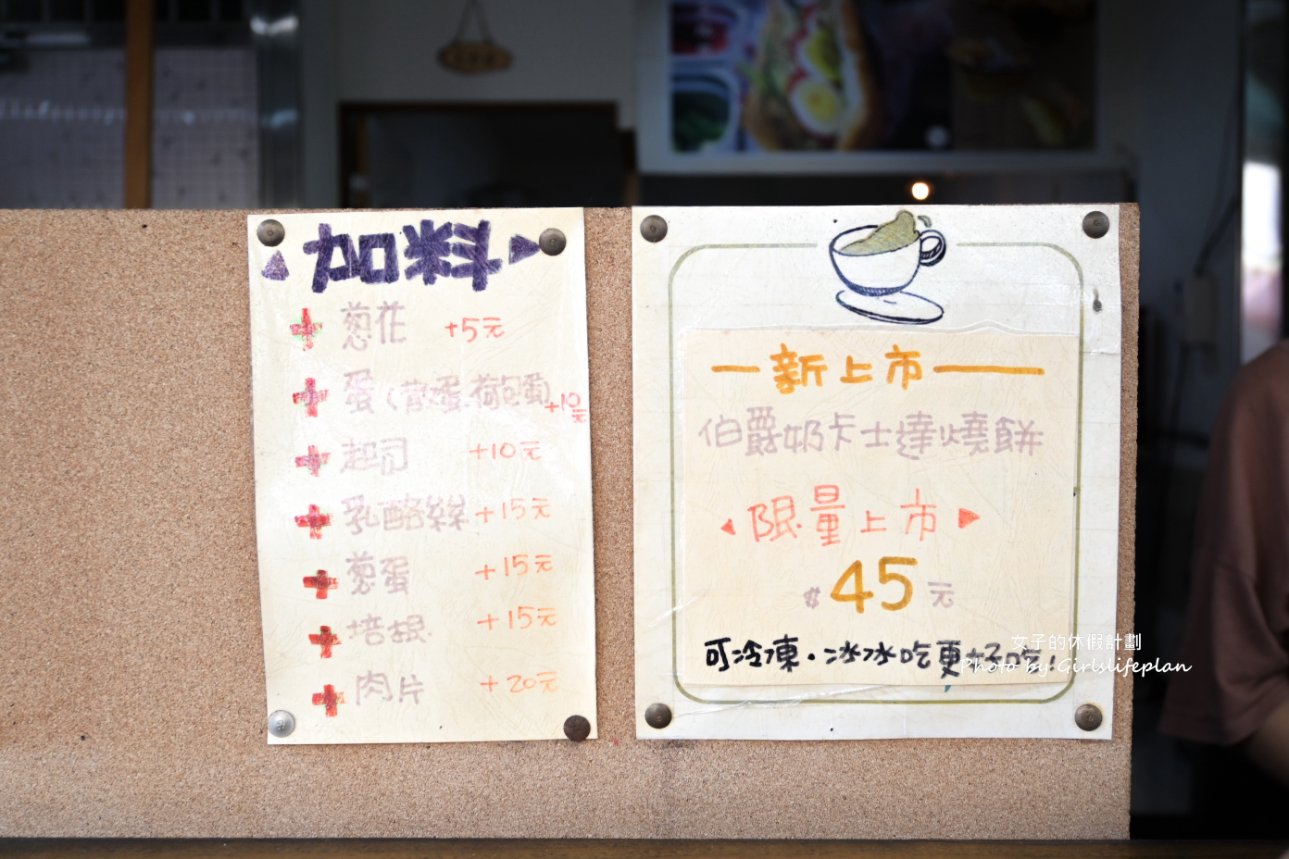 加料
+ 蔥花 +5元
+ 蛋(蔥蛋.荷包蛋 +10元
+ 起司 +10元
+ 乳酪絲 +15元
+ 蔥蛋 +15元
+ 培根 +15元
+ 肉片 +20元
新上市
伯爵奶卡士達燒餅
限量上市
$45元
可冷凍.冰冰吃更好吃!
女子的休假計劃
Photo by Girlslifeplan